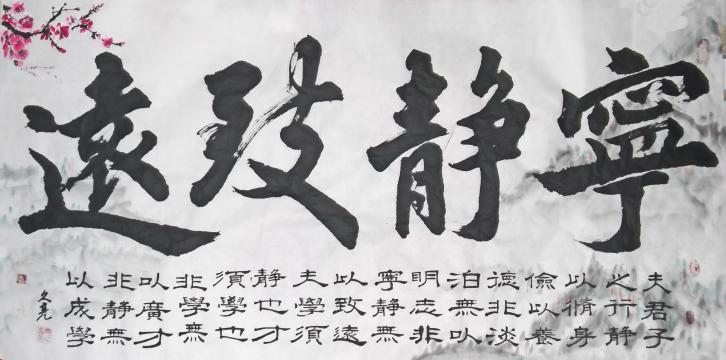 寧静致遠
夫君子
之行静
以脩身
儉以養
德非淡
泊無以
明志非
寧静無
以致遠
夫學須
静也才
須學也
非學無
以廣才
非静無
以成學